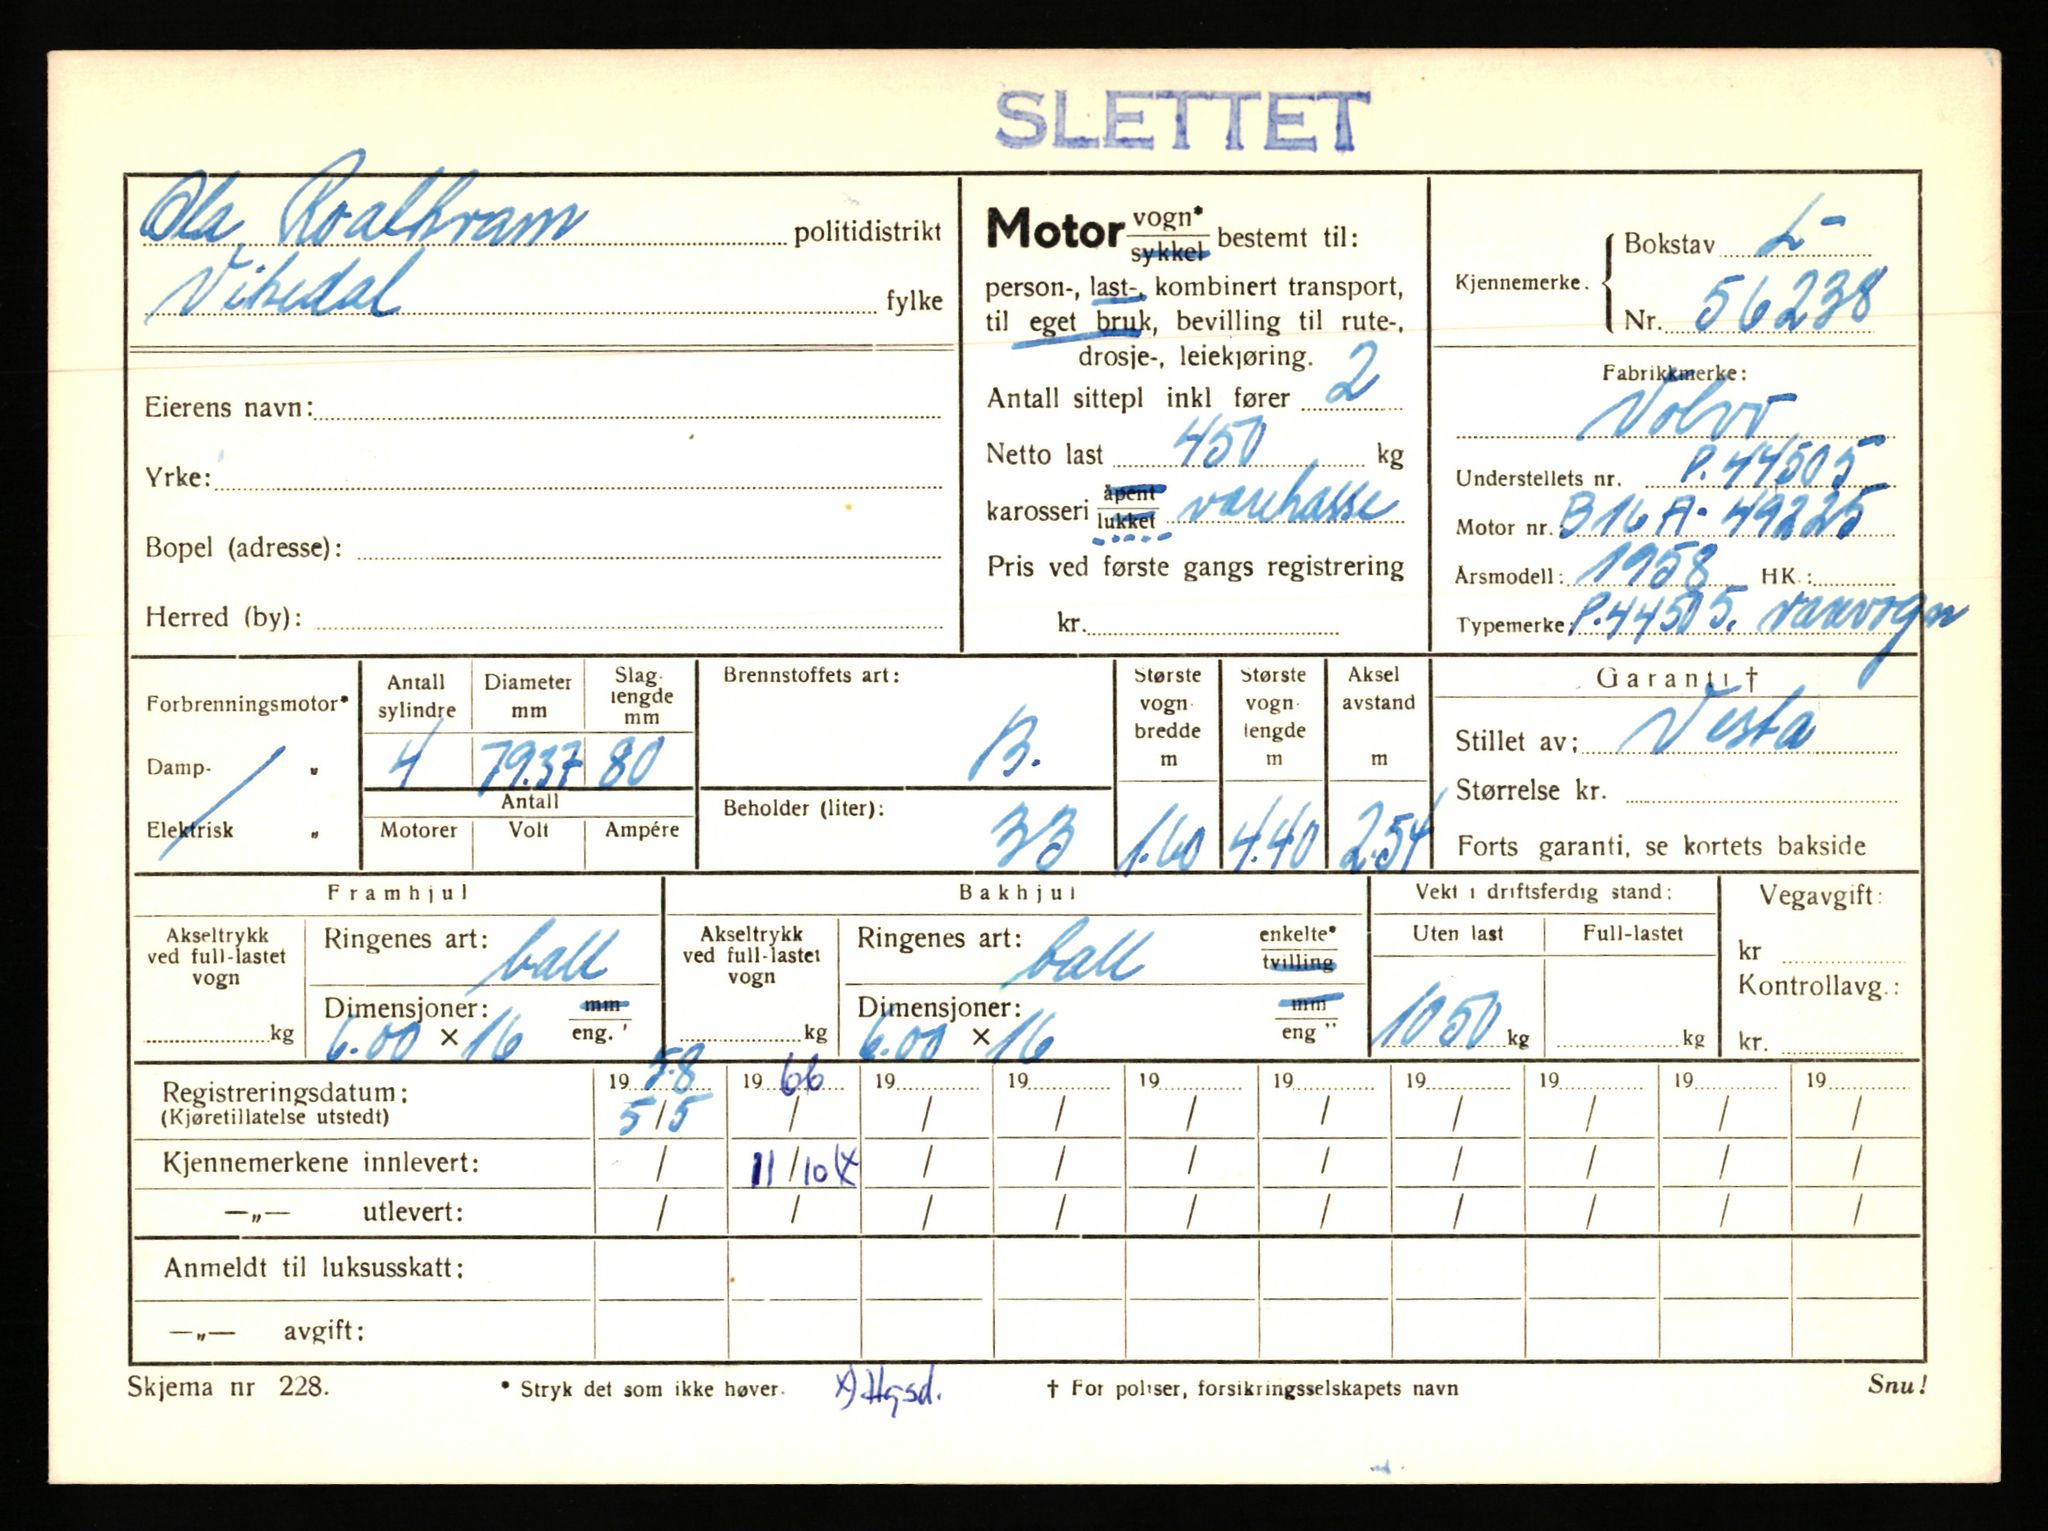 SLETTET
Ola Roalkvam politidistrikt
Vikedal fylke
Eierens navn:
Yrke:
Bopel (adresse):
Herred (by):
Motor vogn* / sykkel bestemt til:
person-, last-, kombinert transport,
til eget bruk, bevilling til rute-,
drosje-, leiekjøring.
Antall sittepl inkl fører 2
Netto last 450 kg
karosseri åpent / lukket varekasse
Pris ved første gangs registrering
kr.
Kjennemerke. { Bokstav L-
Nr. 56238
Fabrikkmerke:
Volvo
Understellets nr. P.44505
Motor nr.: B16A-49225
Årsmodell: 1958 HK.:
Typemerke: P.44505. varevogn
Forbrenningsmotor*
Damp- „
Elektrisk „
Antall sylindre Diameter mm Slag- lengde mm
4 79.37 80
Antall
Motorer Volt Ampére
Brennstoffets art:
B.
Beholder (liter):
33
Største vogn- bredde m
1.60
Største vogn- lengde m
4.40
Aksel avstand m
2.54
Garanti †
Stillet av: Vesta
Størrelse kr.
Forts garanti, se kortets bakside
Framhjul
Akseltrykk ved full-lastet vogn
kg
Ringenes art: ball
Dimensjoner: mm / eng. "
6.00 × 16
Bakhjul
Akseltrykk ved full-lastet vogn
kg
Ringenes art: ball enkelte* / tvilling
Dimensjoner: mm / eng "
6.00 × 16
Vekt i driftsferdig stand:
Uten last Full-lastet
1050 kg kg
Vegavgift:
kr
Kontrollavg.:
kr.
Registreringsdatum: 19 58 19 66 19 19 19 19 19 19 19 19
(Kjøretillatelse utstedt) 5/5 / / / / / / / / /
Kjennemerkene innlevert: / 11/10 x / / / / / / / /
—„— utlevert: / / / / / / / / / /
Anmeldt til luksusskatt:
—„— avgift:
Skjema nr 228. * Stryk det som ikke høver. x) Hgsd. † For poliser, forsikringsselskapets navn Snu!